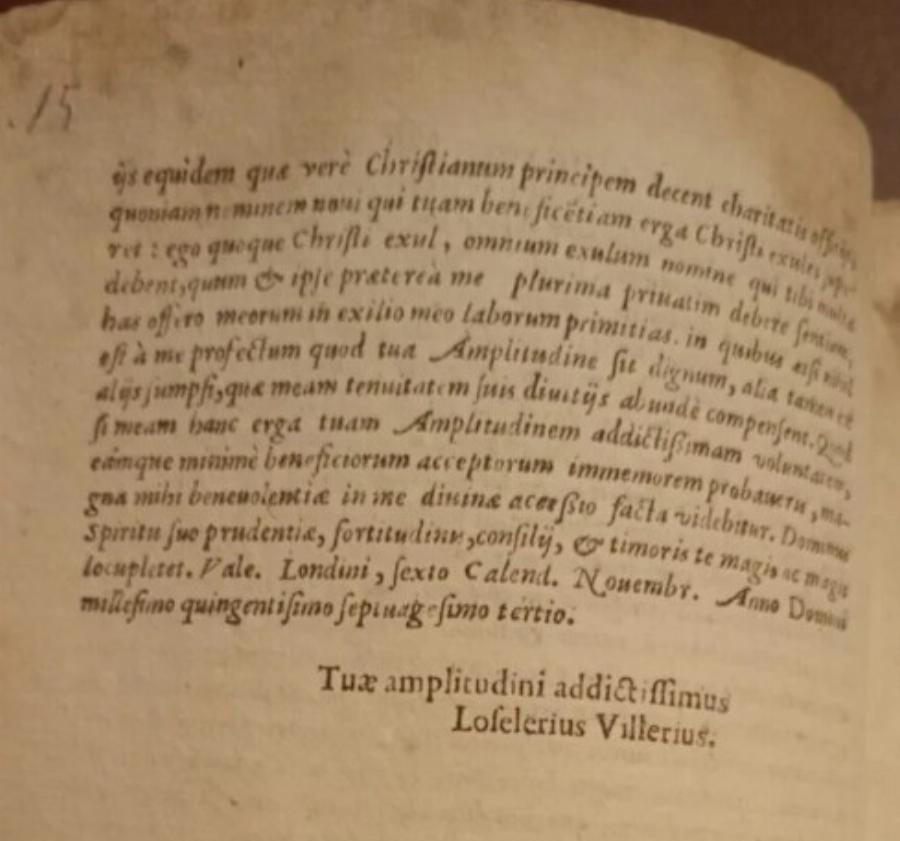 .15
ijs equidem quæ verè Christianum principem decent charitatis officijs
quoniam neminem noui qui tuam beneficẽtiam erga Christi exules
ret : ego quoque Christi exul, omnium exulum nomine qui tibi multa
debent, quum & ipse præterea me plurima priuatim debere sentiam,
has offero meorum in exilio meo laborum primitias. in quibus etsi nihil
est à me profectum quod tua Amplitudine sit dignum, alia tamen ex
alijs sumpsi, quæ meam tenuitatem suis diuitijs abundè compensent. Quod
si meam hanc erga tuam Amplitudinem addictissimam voluntatem,
eámque minimè beneficiorum acceptorum immemorem probaueris, ma-
gna mihi beneuolentiæ in me diuinæ acessio facta videbitur. Dominus
Spiritu suo prudentiæ, fortitudinis, consilij, & timoris te magis ac magis
locupletet. Vale. Londini, sexto Calend. Nouembr. Anno Domini
millesimo quingentisimo septuagesimo tertio.
Tuæ amplitudini addictissimus
Loselerius Villerius.